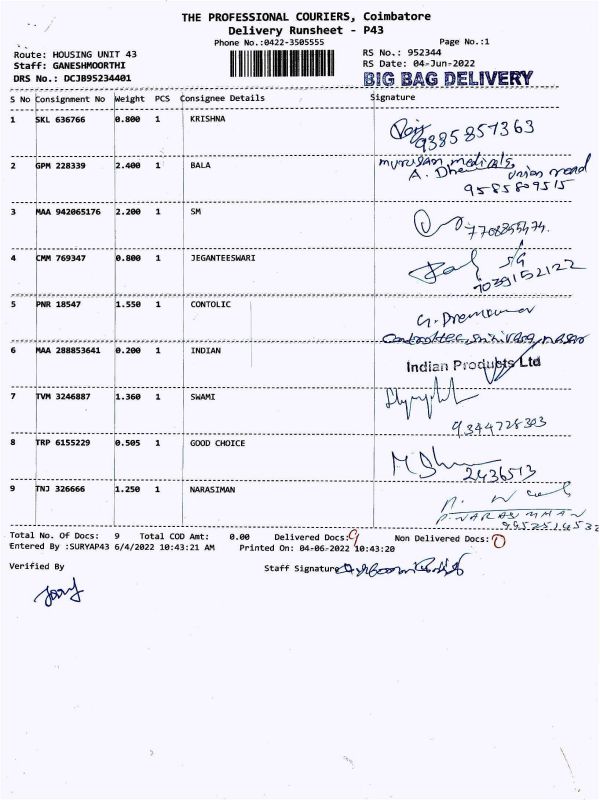 THE PROFESSIONAL COURIERS, Coimbatore
Delivery Runsheet - P43
Phone No.:0422-3505555
Page No.:1
Route: HOUSING UNIT 43
RS No.: 952344
Staff: GANESHMOORTHI
RS Date: 04-Jun-2022
DRS No.: DCJB95234401
BIG BAG DELIVERY
S No Consignment No Weight PCS Consignee Details Signature
1 SKL 636766 0.800 1 KRISHNA
9385857363
2 GPM 228339 2.400 1 BALA
murugan medicals,
union road
9585809515
3 MAA 942065176 2.200 1 SM
4 CMM 769347 0.800 1 JEGANTEESWARI
7039152122
5 PNR 18547 1.550 1 CONTOLIC
G. Premkumar
6 MAA 288853641 0.200 1 INDIAN
Indian Products Ltd
7 TVM 3246887 1.360 1 SWAMI
9344728303
8 TRP 6155229 0.505 1 GOOD CHOICE
2436513
9 TNJ 326666 1.250 1 NARASIMAN
Total No. Of Docs: 9 Total COD Amt: 0.00 Delivered Docs: 9 Non Delivered Docs: 0
Entered By :SURYAP43 6/4/2022 10:43:21 AM Printed On: 04-06-2022 10:43:20
Verified By Staff Signature